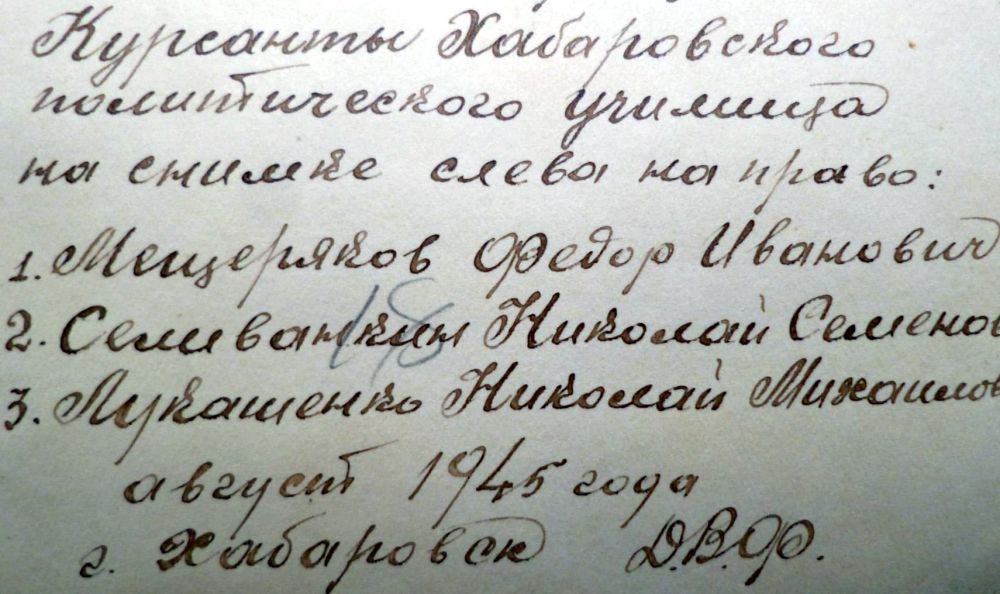 Курсанты Хабаровского
политического училища
на снимке слева на право:
1. Мещеряков Федор Иванович
2. Селиванкин Николай Семенов
3. Лукашенко Николай Михаилов
18
август 1945 года
г. Хабаровск Д.В.Ф.